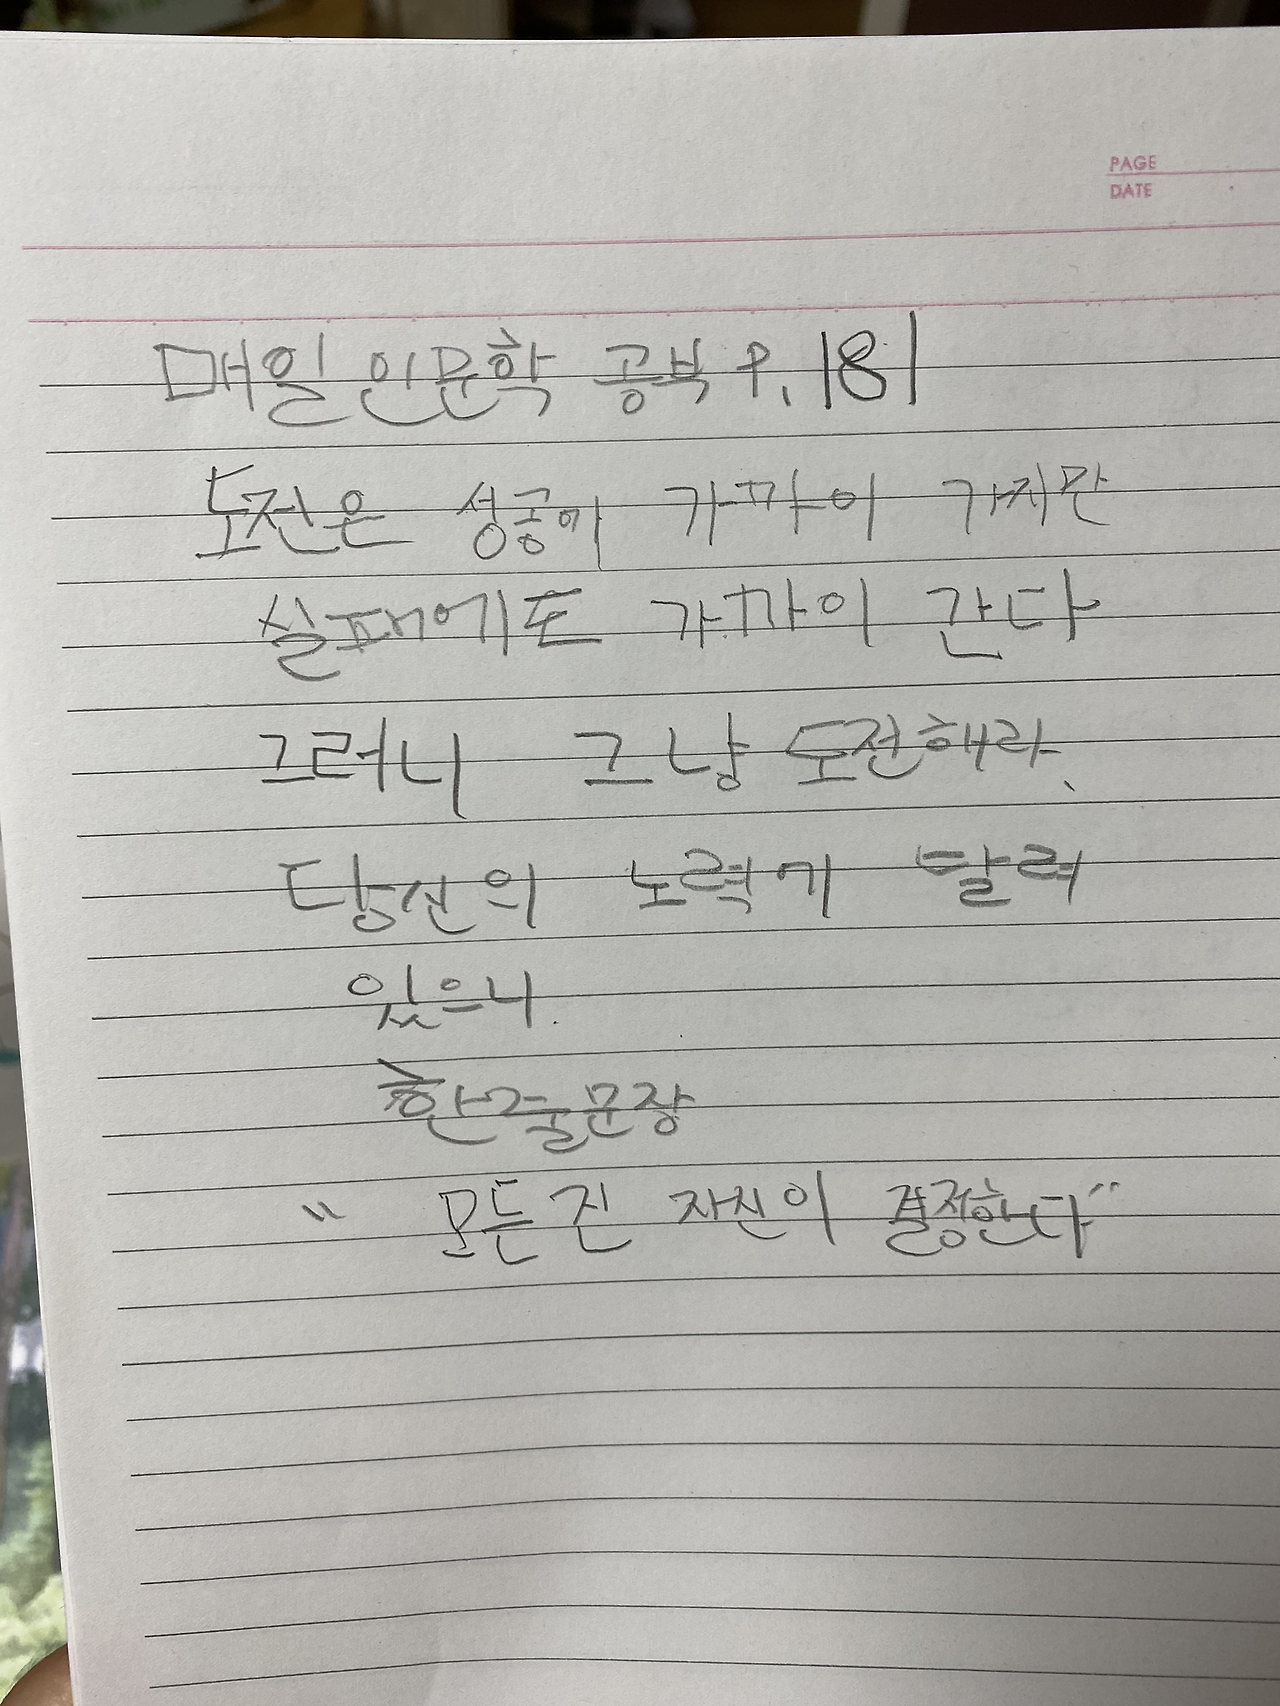 PAGE
DATE
매일 인문학 공부 P. 181
도전은 성공에 가까이 가지만
실패에도 가까이 간다
그러니 그냥 도전해라.
당신의 노력에 달려
있으니.
한줄문장
" 모든 건 자신이 결정한다"